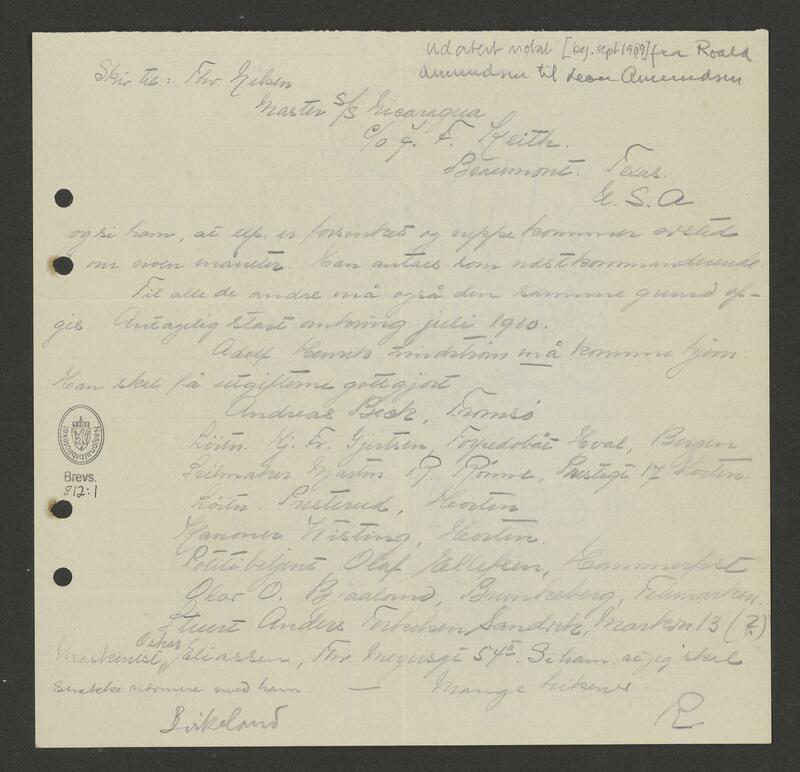 Udatert notat [beg. sept 1909] fra Roald
Amundsen til Leon Amundsen
Skriv til: Thr. Nilsen
Master S/S Nicaragua
c/o J. F. Keith.
Beaumont. Texas.
U. S. A
og si ham, at exp. er forsinket og neppe kommer avsted
om noen måneter. Han antaes som næstkommanderende.
Til alle de andre må også den samme grund op-
gis. Antagelig start omkring juli 1910.
Adolf Henrik Lindstrøm må komme hjem.
Han skal få utgifterne gottgjort
Andreas Beck, Tromsø
Løitn. Hj. Fr. Gjertsen, Torpedobåt Hval, Bergen
Seilmaker Martin R. Rønne, Prestegt 17 Horten.
Løitn. Prestrud, Horten
Kanoner Wisting, Horten.
Politibetjent Olaf Ellefsen, Hammerfest
Olav O. Bjaaland, Brunkeberg, Telemarken.
Stuert Anders Sandvik, 13 (?)
Maskinist Oskar Eliassen, Thv Meyersgt 54 II. Si ham, at jeg skal
snakke nærmere med ham — Mange hilsener.
R
Birkeland
Nasjonalbiblioteket
Brevs.
812:1